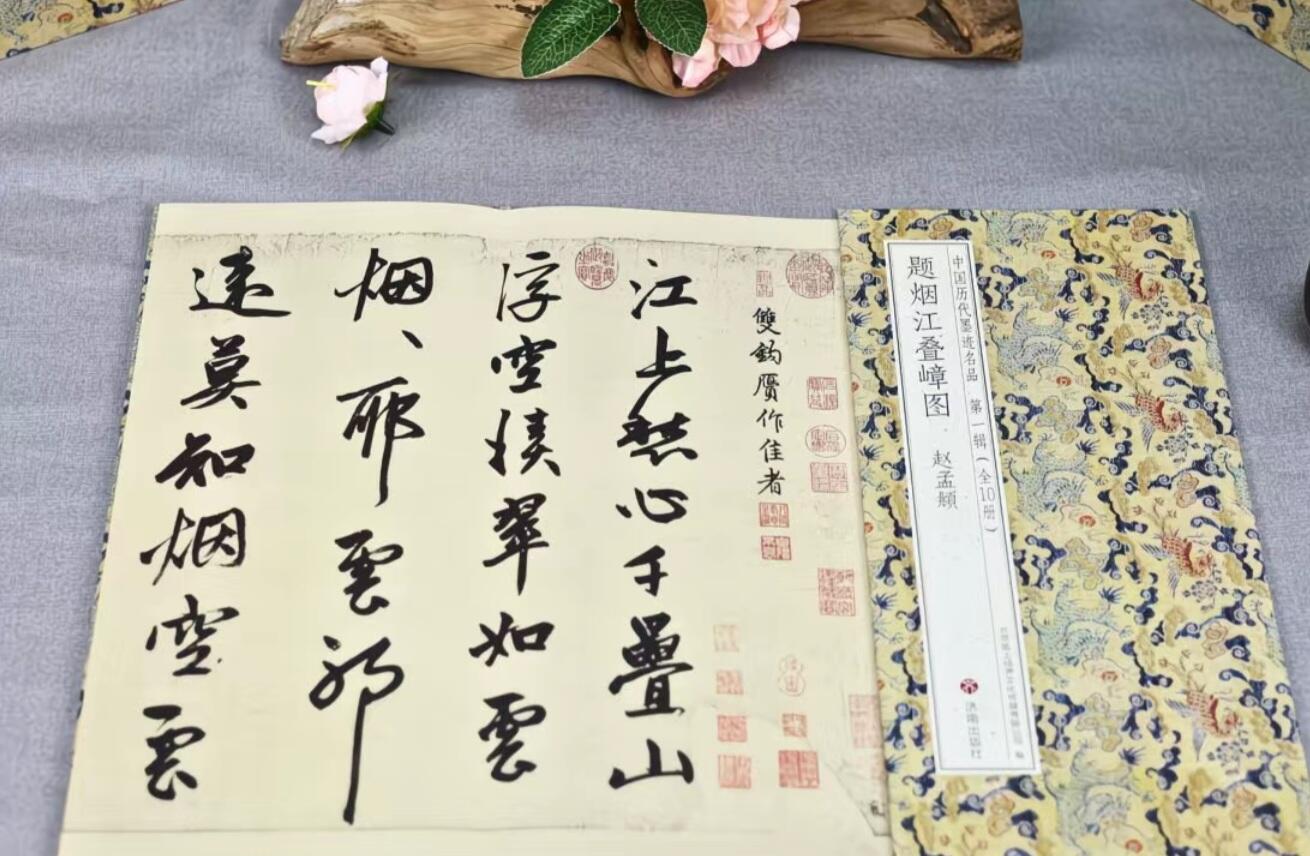 中国历代墨迹名品 第一辑（全10册）
题烟江叠嶂图 赵孟頫
济南出版社
雙鈎贗作佳者
江上愁心千疊山
浮空積翠如雲
烟、耶雲耶
遠莫知烟空雲